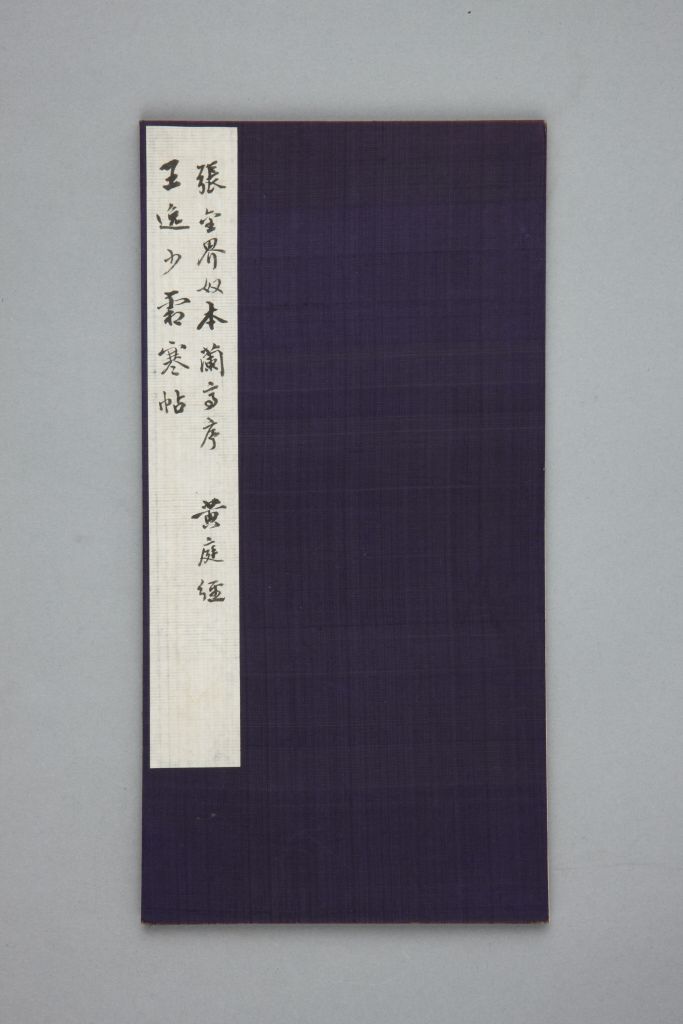 張金界奴本蘭亭序 黃庭經
王逸少霜寒帖